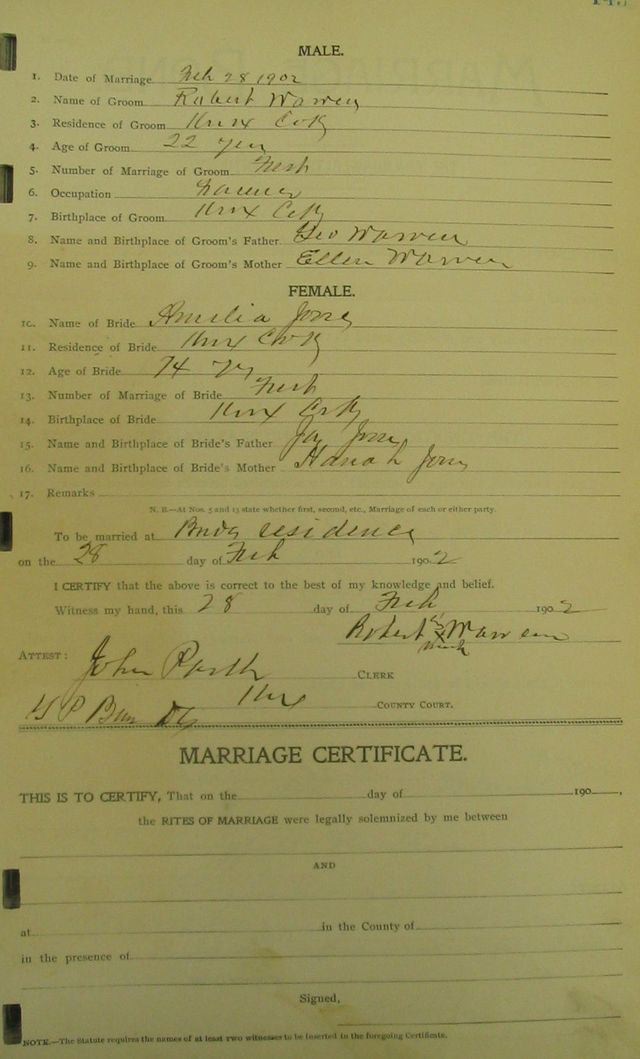 MALE.
1. Date of Marriage Feb 28 1902
2. Name of Groom Robert Warren
3. Residence of Groom Knox Co Ky
4. Age of Groom 22 years
5. Number of Marriage of Groom First
6. Occupation Farmer
7. Birthplace of Groom Knox Co Ky
8. Name and Birthplace of Groom's Father Geo Warren
9. Name and Birthplace of Groom's Mother Ellen Warren
FEMALE.
10. Name of Bride Amelia Jones
11. Residence of Bride Knox Co Ky
12. Age of Bride
13. Number of Marriage of Bride First
14. Birthplace of Bride Knox Co Ky
15. Name and Birthplace of Bride's Father Jones
16. Name and Birthplace of Bride's Mother Hanah Jones
17. Remarks
N. B.—At Nos. 5 and 13 state whether first, second, etc., Marriage of each or either party.
To be married at Brides residence
on the 28 day of Feb 1902
I CERTIFY that the above is correct to the best of my knowledge and belief.
Witness my hand, this 28 day of Feb 1902
Robert X Warren
mark
ATTEST: John CLERK
Knox COUNTY COURT.
MARRIAGE CERTIFICATE.
THIS IS TO CERTIFY, That on the day of 190 ,
the RITES OF MARRIAGE were legally solemnized by me between
AND
at in the County of
in the presence of
Signed,
NOTE.—The Statute requires the names of at least two witnesses to be inserted in the foregoing Certificate.